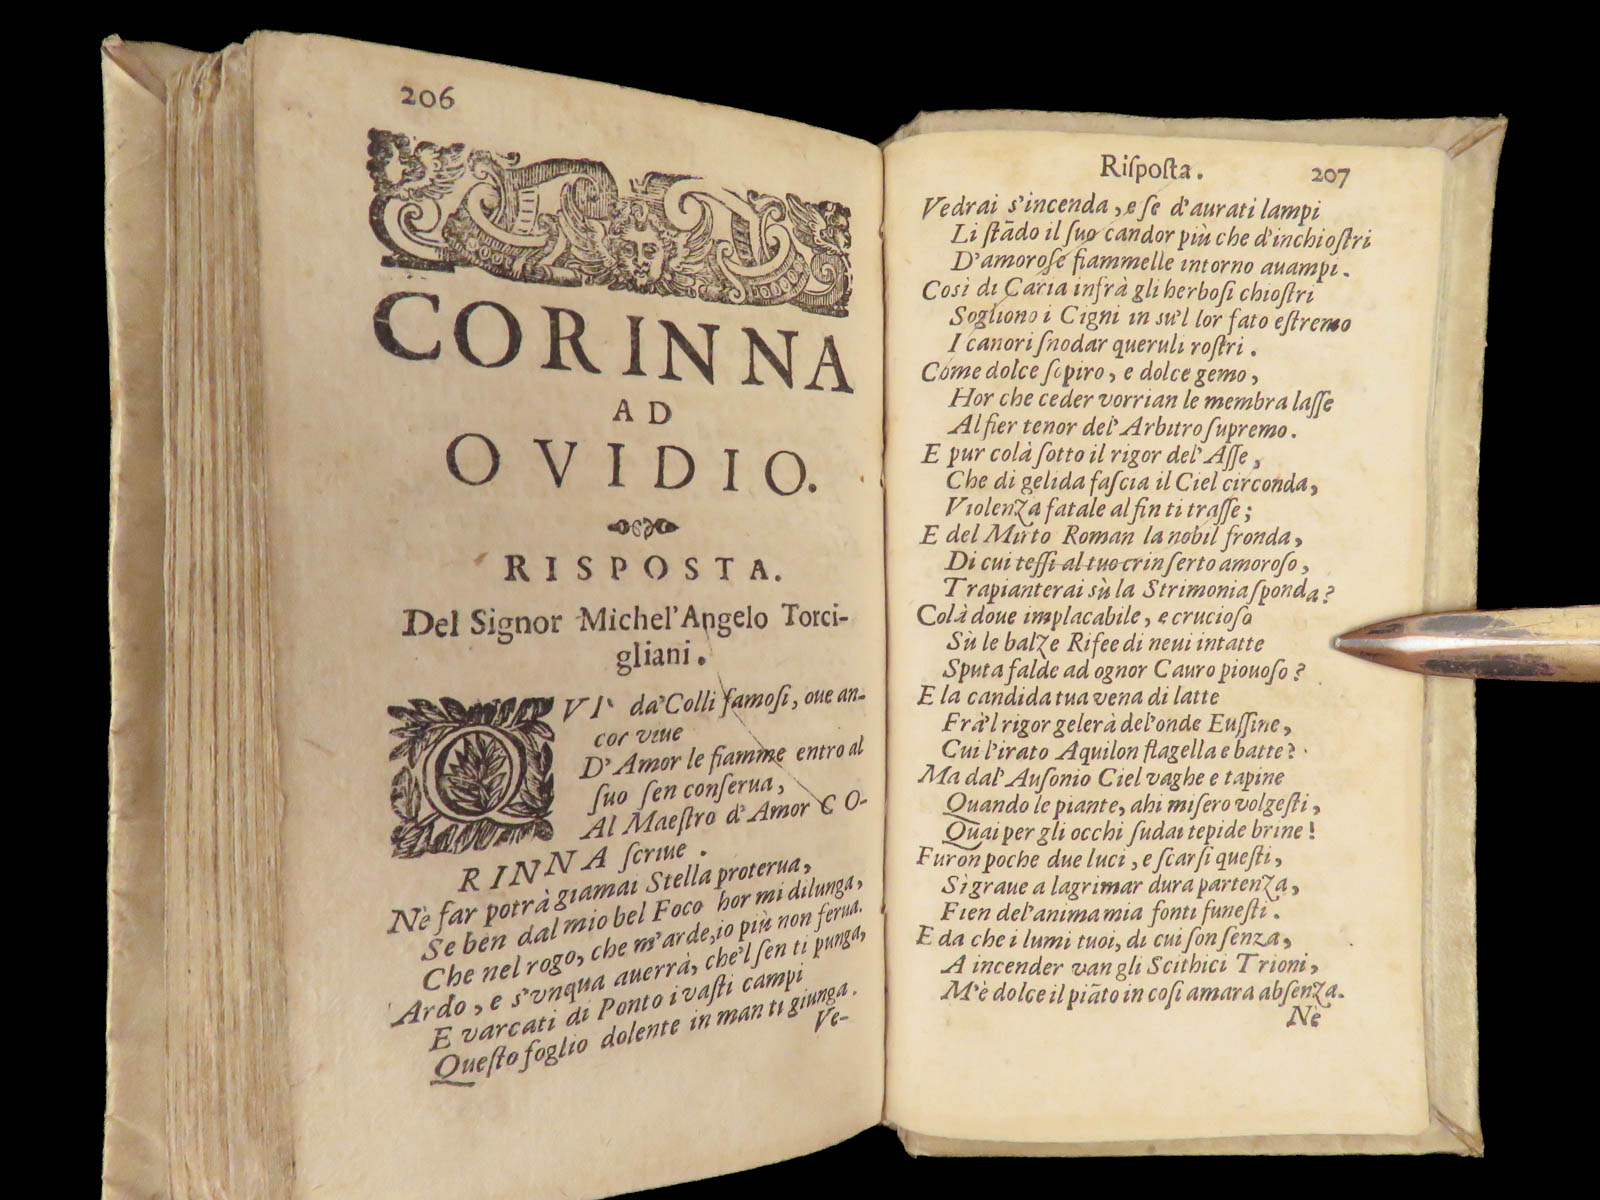 206
CORINNA
AD
OVIDIO.
RISPOSTA.
Del Signor Michel'Angelo Torci-
gliani.
QVI da'Colli famosi, oue an-
cor viue
D'Amor le fiamme entro al
suo sen conserua,
Al Maestro d'Amor CO-
RINNA scriue.
Nè far potrà giamai Stella proterua,
Se ben dal mio bel Foco hor mi dilunga,
Che nel rogo, che m'arde, io più non ferua.
Ardo, e s'vnqua auerrà, che'l sen ti punga,
E varcati di Ponto i vasti campi
Questo foglio dolente in man ti giunga.
Ve-
Risposta. 207
Vedrai s'incenda, e se d'aurati lampi
Li stādo il suo candor più che d'inchiostri
D'amorose fiammelle intorno auampi.
Così di Caria infrà gli herbosi chiostri
Sogliono i Cigni in su'l lor fato estremo
I canori snodar queruli rostri.
Come dolce sospiro, e dolce gemo,
Hor che ceder vorrian le membra lasse
Al fier tenor del' Arbitro supremo.
E pur colà sotto il rigor del' Asse,
Che di gelida fascia il Ciel circonda,
Violenza fatale al fin ti trasse;
E del Mirto Roman la nobil fronda,
Di cui tessi al tuo crin serto amoroso,
Trapianterai sù la Strimonia sponda?
Colà doue implacabile, e crucioso
Sù le balze Rifee di neui intatte
Sputa falde ad ognor Cauro piouoso?
E la candida tua vena di latte
Frà'l rigor gelerà del'onde Eussine,
Cui l'irato Aquilon flagella e batte?
Ma dal' Ausonio Ciel vaghe e tapine
Quando le piante, ahi misero volgesti,
Quai per gli occhi sudai tepide brine!
Furon poche due luci, e scarsi questi,
Sì graue a lagrimar dura partenza,
Fien del'anima mia fonti funesti.
E da che i lumi tuoi, di cui son senza,
A incender van gli Scithici Trioni,
M'è dolce il piāto in così amara absenza.
Nè